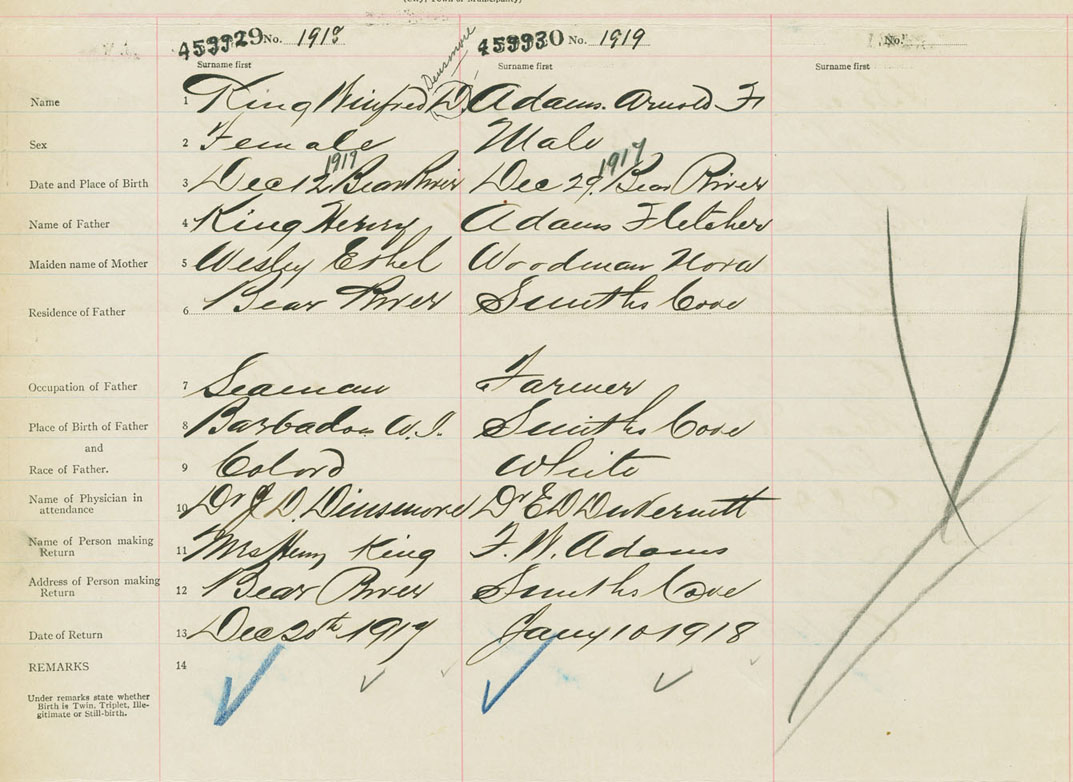 (City, Town or Municipality)
459929 No. 1918 459930 No. 1919 No.
Surname first Surname first Surname first
Densmore
Name 1 King Winifred D. Adams. Arnold F
Sex 2 Female Male
1917 1917
Date and Place of Birth 3 Dec 12 Bear River Dec 29, Bear River
Name of Father 4 King Henry Adams Fletcher
Maiden name of Mother 5 Wesley Ethel Woodman Nora
Residence of Father 6 Bear River Smiths Cove
Occupation of Father 7 Seaman Farmer
Place of Birth of Father 8 Barbados W.I. Smiths Cove
and
Race of Father. 9 Colord White
Name of Physician in attendance 10 Dr J. D. Dinsmore Dr E D
Name of Person making Return 11 Mrs Henry King F. W. Adams
Address of Person making Return 12 Bear River Smiths Cove
Date of Return 13 Dec 20th 1917 Jany 10 1918
REMARKS 14
Under remarks state whether
Birth is Twin, Triplet, Ille-
gitimate or Still-birth.